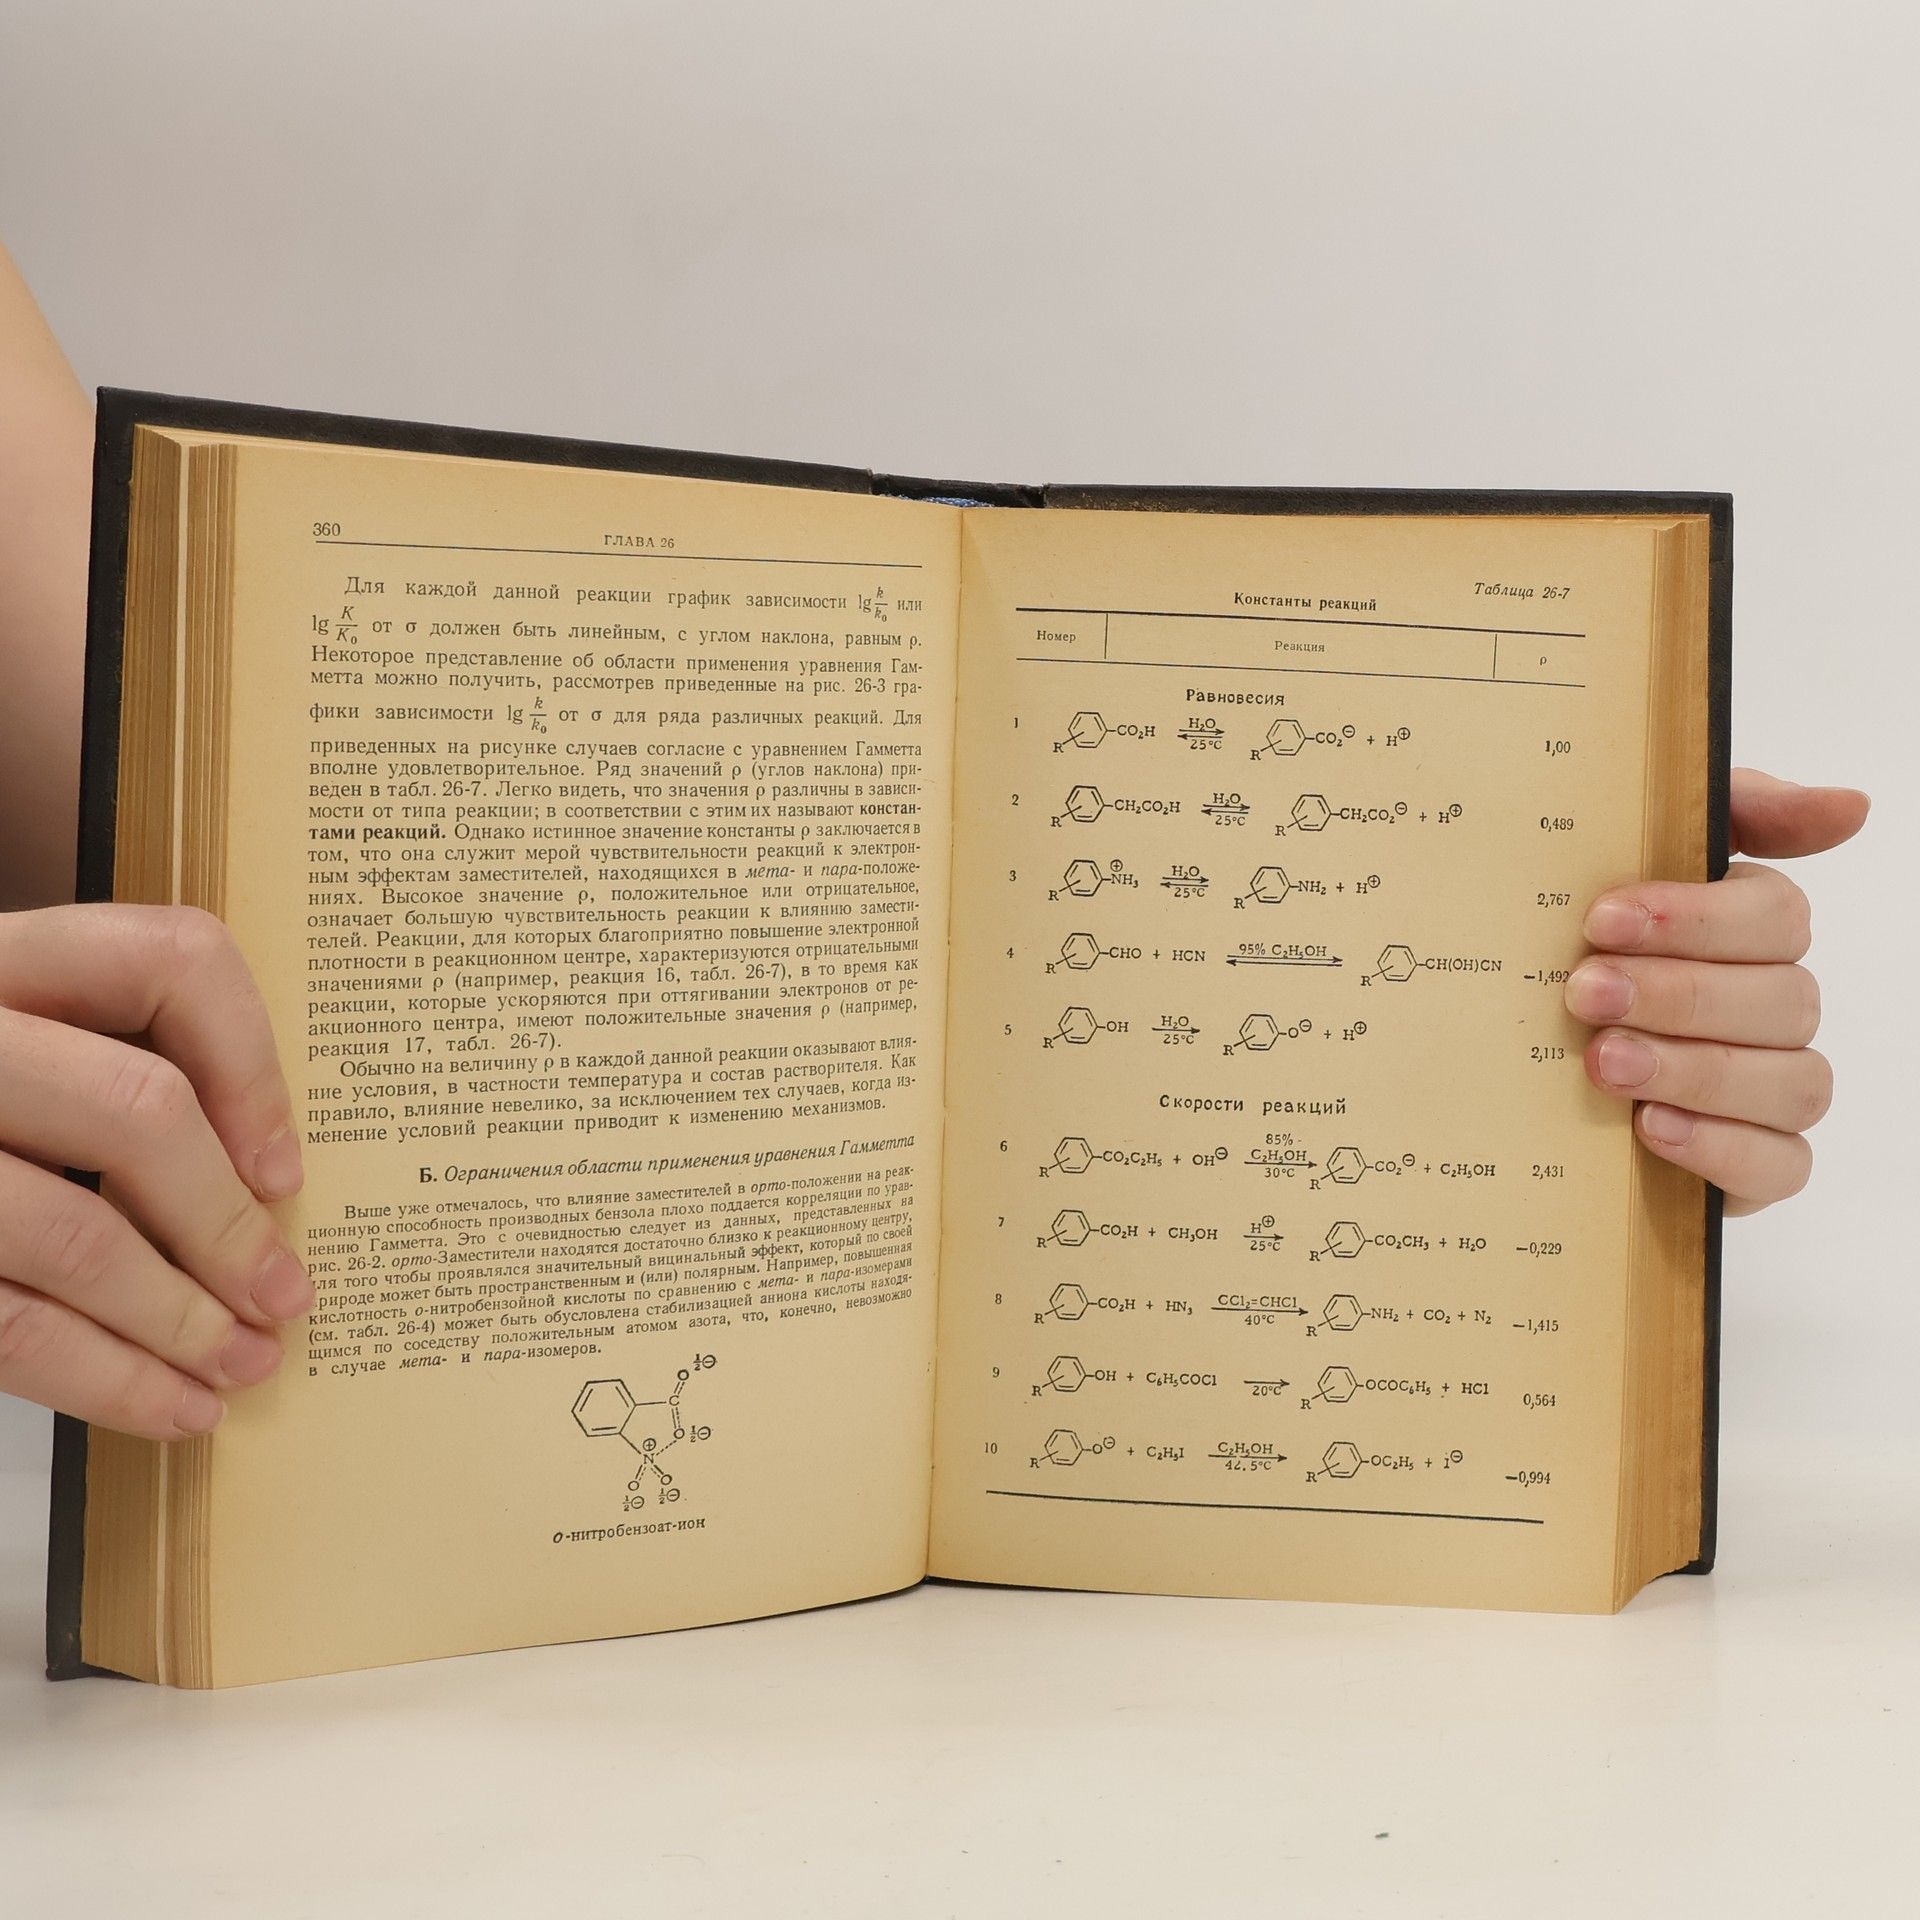 360
ГЛАВА 26
Для каждой данной реакции график зависимости lg k/k₀ или
lg K/K₀ от σ должен быть линейным, с углом наклона, равным ρ.
Некоторое представление об области применения уравнения Гам-
метта можно получить, рассмотрев приведенные на рис. 26-3 гра-
фики зависимости lg k/k₀ от σ для ряда различных реакций. Для
приведенных на рисунке случаев согласие с уравнением Гамметта
вполне удовлетворительное. Ряд значений ρ (углов наклона) при-
веден в табл. 26-7. Легко видеть, что значения ρ различны в зависи-
мости от типа реакции; в соответствии с этим их называют констан-
тами реакций. Однако истинное значение константы ρ заключается в
том, что она служит мерой чувствительности реакций к электрон-
ным эффектам заместителей, находящихся в мета- и пара-положе-
ниях. Высокое значение ρ, положительное или отрицательное,
означает большую чувствительность реакции к влиянию замести-
телей. Реакции, для которых благоприятно повышение электронной
плотности в реакционном центре, характеризуются отрицательными
значениями ρ (например, реакция 16, табл. 26-7), в то время как
реакции, которые ускоряются при оттягивании электронов от ре-
акционного центра, имеют положительные значения ρ (например,
реакция 17, табл. 26-7).
Обычно на величину ρ в каждой данной реакции оказывают влия-
ние условия, в частности температура и состав растворителя. Как
правило, влияние невелико, за исключением тех случаев, когда из-
менение условий реакции приводит к изменению механизмов.
Б. Ограничения области применения уравнения Гамметта
Выше уже отмечалось, что влияние заместителей в орто-положении на реак-
ционную способность производных бензола плохо поддается корреляции по урав-
нению Гамметта. Это с очевидностью следует из данных, представленных на
рис. 26-2. орто-Заместители находятся достаточно близко к реакционному центру,
для того чтобы проявлялся значительный вицинальный эффект, который по своей
природе может быть пространственным и (или) полярным. Например, повышенная
кислотность о-нитробензойной кислоты по сравнению с мета- и пара-изомерами
(см. табл. 26-4) может быть обусловлена стабилизацией аниона кислоты находя-
щимся по соседству положительным атомом азота, что, конечно, невозможно
в случае мета- и пара-изомеров.
½⊖
O
C
O ½⊖
⊕
N
O O
½⊖ ½⊖
о-нитробензоат-ион
Таблица 26-7
Константы реакций
Номер Реакция ρ
Равновесия
1 R CO₂H H₂O 25°C R CO₂⊖ + H⊕ 1,00
2 R CH₂CO₂H H₂O 25°C R CH₂CO₂⊖ + H⊕ 0,489
3 R ⊕NH₃ H₂O 25°C R NH₂ + H⊕ 2,767
4 R CHO + HCN 95% C₂H₅OH R CH(OH)CN −1,492
5 R OH H₂O 25°C R O⊖ + H⊕ 2,113
Скорости реакций
6 R CO₂C₂H₅ + OH⊖ 85%- C₂H₅OH 30°C R CO₂⊖ + C₂H₅OH 2,431
7 R CO₂H + CH₃OH H⊕ 25°C R CO₂CH₃ + H₂O −0,229
8 R CO₂H + HN₃ CCl₂=CHCl 40°C R NH₂ + CO₂ + N₂ −1,415
9 R OH + C₆H₅COCl 20°C R OCOC₆H₅ + HCl 0,564
10 R O⊖ + C₂H₅I C₂H₅OH 42,5°C R OC₂H₅ + I⊖ −0,994